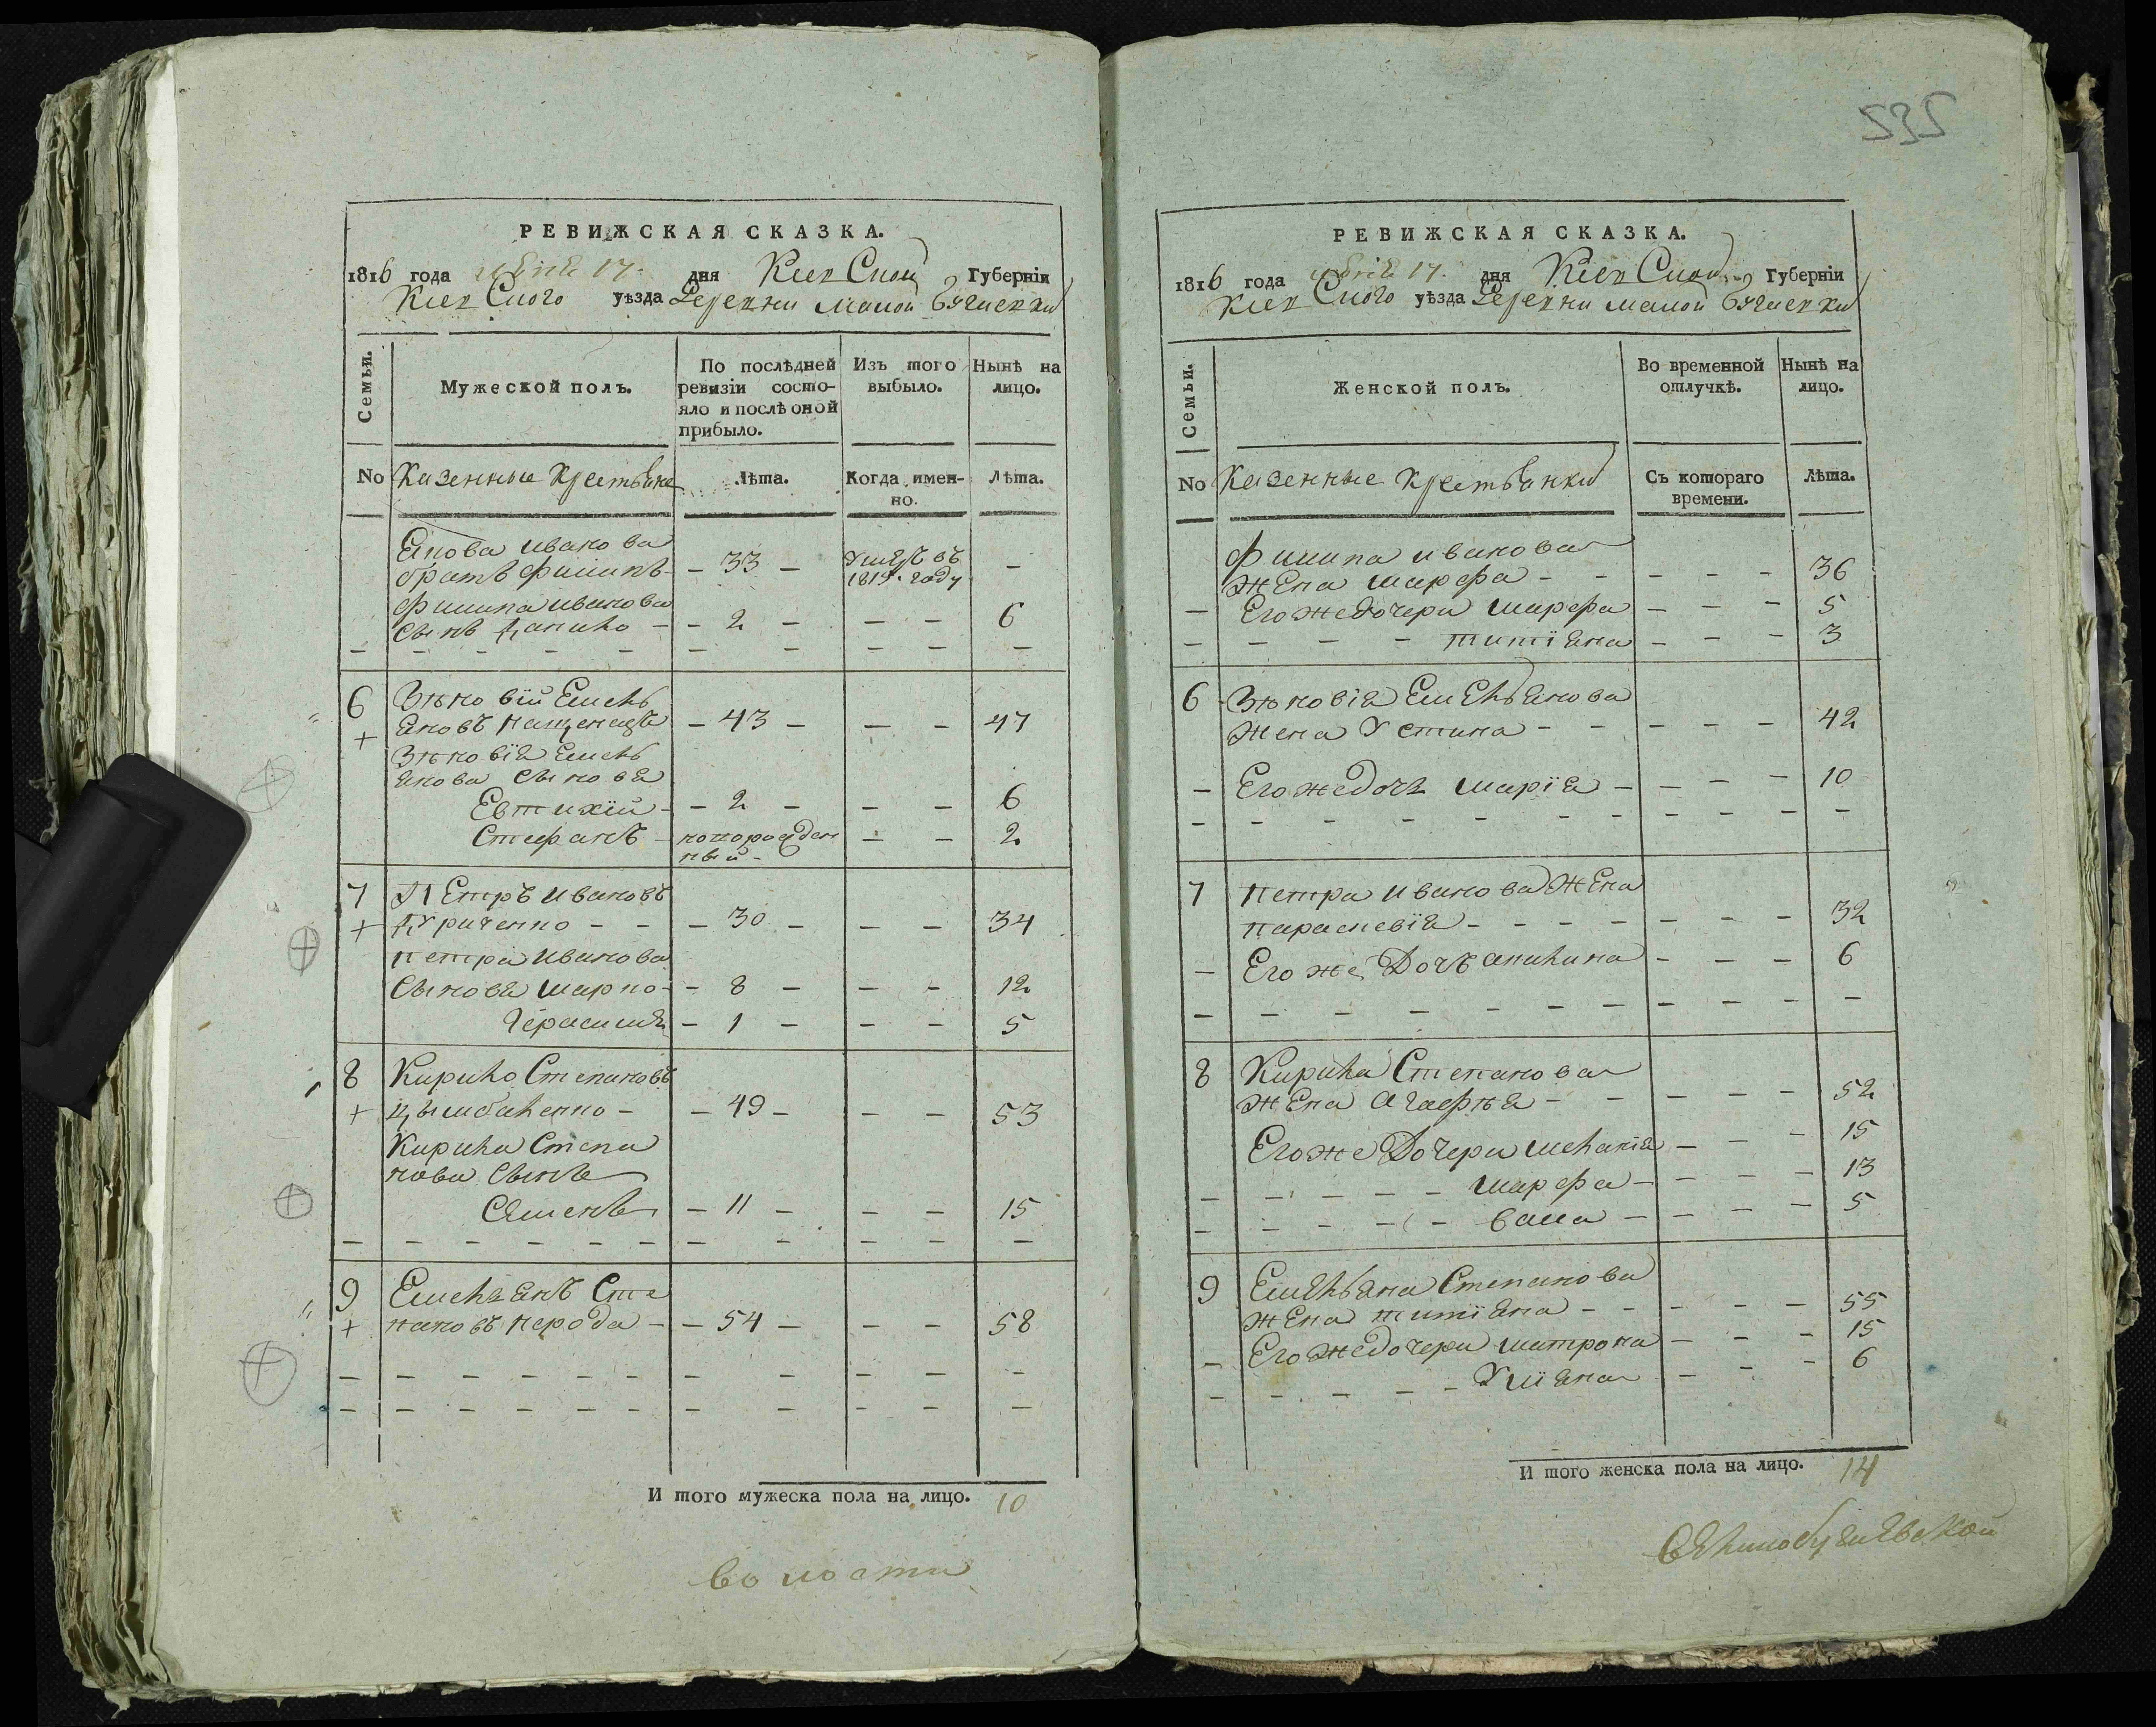 РЕВИЖСКАЯ СКАЗКА.
1816 года июня 17. дня Киевской Губерніи
Киевского уѣзда Деревни малой Бугаевки
Семьи.
Мужеской полъ.
По послѣдней ревизіи состояло и послѣ оной прибыло.
Изъ того выбыло.
Нынѣ на лицо.
No
Казенные Крестьяне
Лѣта.
Когда имен-
но.
Лѣта.
Якова иванова
братъ филипъ - 33 - умеръ въ 1815. году -
филипа иванова
сынъ данило - - 2 - - - 6
6 Зѣновій Емель
яновъ - 43 - - - 47
Зѣновія Емель
янова сыновя
Евтихій - - 2 - - - 6
Стефанъ - новорожден
ный - - - 2
7 Петръ ивановъ
Куриченко - - - 30 - - - 34
петра иванова
Сыновя марко - - 8 - - - 12
Герасимъ - 1 - - - 5
8 Кирило Степановъ
цымбаленко - - 49 - - - 53
Кирила Степа
нова Сынъ
Семенъ - 11 - - - 15
9 Емельянъ Сте
пановъ - - 54 - - - 58
И того мужеска пола на лицо. 10
волости
535
РЕВИЖСКАЯ СКАЗКА.
1816 года июня 17. дня Киевской Губерніи
Киевского уѣзда Деревни малой Бугаевки
Семьи.
Женской полъ.
Во временной отлучкѣ.
Нынѣ на лицо.
No
Казенные Крестьянки
Съ котораго времени.
Лѣта.
филипа иванова
жена марфа - - - - - 36
- Его же дочери марфа - - - 5
- - - - - титіяна - - - 3
6 Зѣновія Емельянова
жена Устина - - - - - 42
- Его же дочь марія - - - - 10
7 петра иванова жена
параскевія - - - - - - - 32
- Его же Дочъ акилина - - - 6
8 Кирила Степанова
жена агафія - - - - - 52
Его же Дочери меланія - - - 15
- - - - - - марфа - - - - 13
- - - - - васа - - - - - 5
9 Емельяна Степанова
жена титіяна - - - - - 55
- Его же дочери матрона - - - 15
- - - - - - Уліяна - - - 6
И того женска пола на лицо. 14